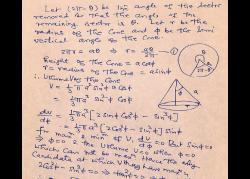 Let (2π-θ) be the angle of the sector
removed so that the angle of the
remaining sector is θ. Let r be the
radius of the cone and φ be the semi
vertical angle of the cone.
2πr = aθ ⇒ r = aθ/2π —①
Height of the cone = a cosφ
r = radius of the cone = a sinφ
∴ Volume of the cone
V = 1/3 π a² sin²φ a cosφ
= 1/3 πa³ sin²φ cosφ
dv/dφ = 1/3 πa³ [2 sinφ cos²φ - sin³φ]
= 1/3 πa³ [2cos²φ - sin²φ] sinφ
for max & min of V, dv/dφ = 0 but sinφ=0
⇒ φ=0 the volume V=0 when φ=0
which can not be max. Hence the only
candidate at which V has max is
2cos²φ - sin²φ = 0 ⇒
θ
2π-θ
a
φ
r